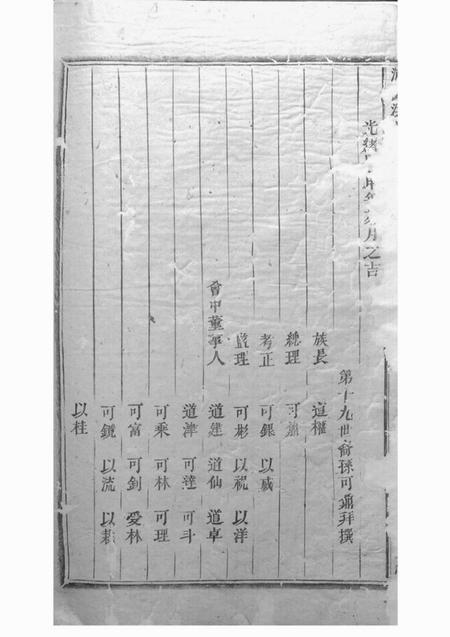 光緒年月之吉
第十九世裔孫可鼎拜撰
族長 道權
總理 可
考正 可銀 以咸
監理 可彬 以祝 以洋
會中董事人 道建 道仙 道卓
道津 可達 可斗
可乘 可林 可理
可富 可釗 愛林
可鏡 以流 以
以桂